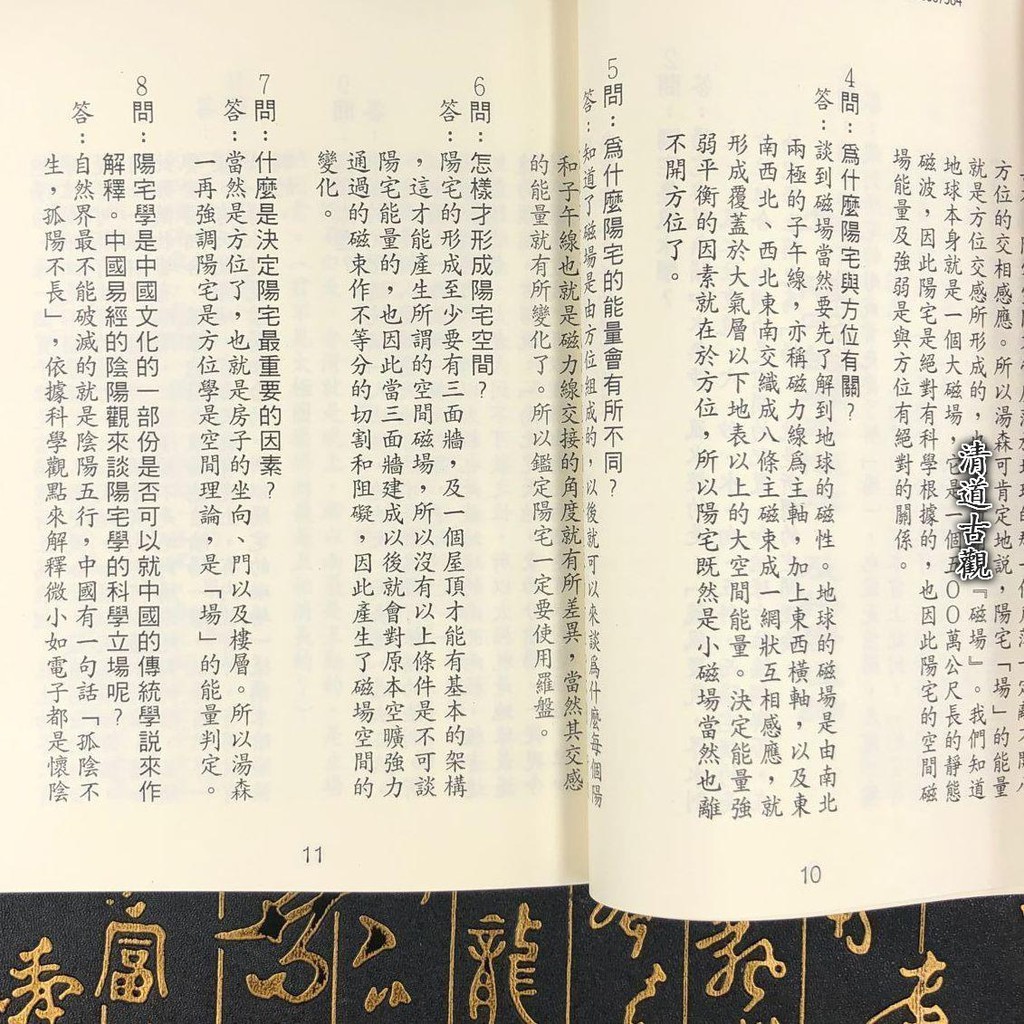 方位的交相感應。所以湯森可肯定地說，陽宅「場」的能量
就是方位交感所形成的，也 『磁場』。我們知道
地球本身就是一個大磁場，它是一個五００萬公尺長的靜態
磁波，因此陽宅是絕對有科學根據的，也因此陽宅的空間磁
場能量及強弱是與方位有絕對的關係。
4問：爲什麼陽宅與方位有關？
答：談到磁場當然要先了解到地球的磁性。地球的磁場是由南北
兩極的子午線，亦稱磁力線爲主軸，加上東西橫軸，以及東
南西北、西北東南交織成八條主磁束成一網狀互相感應，就
形成覆蓋於大氣層以下地表以上的大空間能量。決定能量強
弱平衡的因素就在於方位，所以陽宅既然是小磁場當然也離
不開方位了。
5問：爲什麼陽宅的能量會有所不同？
答：知道了磁場是由方位組成的，以後就可以來談爲什麼每個陽
10
和子午線也就是磁力線交接的角度就有所差異，當然其交感
的能量就有所變化了。所以鑑定陽宅一定要使用羅盤。
6問：怎樣才形成陽宅空間？
答：陽宅的形成至少要有三面牆，及一個屋頂才能有基本的架構
，這才能產生所謂的空間磁場，所以沒有以上條件是不可談
陽宅能量的，也因此當三面牆建成以後就會對原本空曠強力
通過的磁束作不等分的切割和阻礙，因此產生了磁場空間的
變化。
7問：什麼是決定陽宅最重要的因素？
答：當然是方位了，也就是房子的坐向、門以及樓層。所以湯森
一再強調陽宅是方位學是空間理論，是「場」的能量判定。
8問：陽宅學是中國文化的一部份是否可以就中國的傳統學説來作
解釋。中國易經的陰陽觀來談陽宅學的科學立場呢？
答：自然界最不能破滅的就是陰陽五行，中國有一句話「孤陰不
生，孤陽不長」，依據科學觀點來解釋微小如電子都是懷陰
11
清道古觀
富
龍